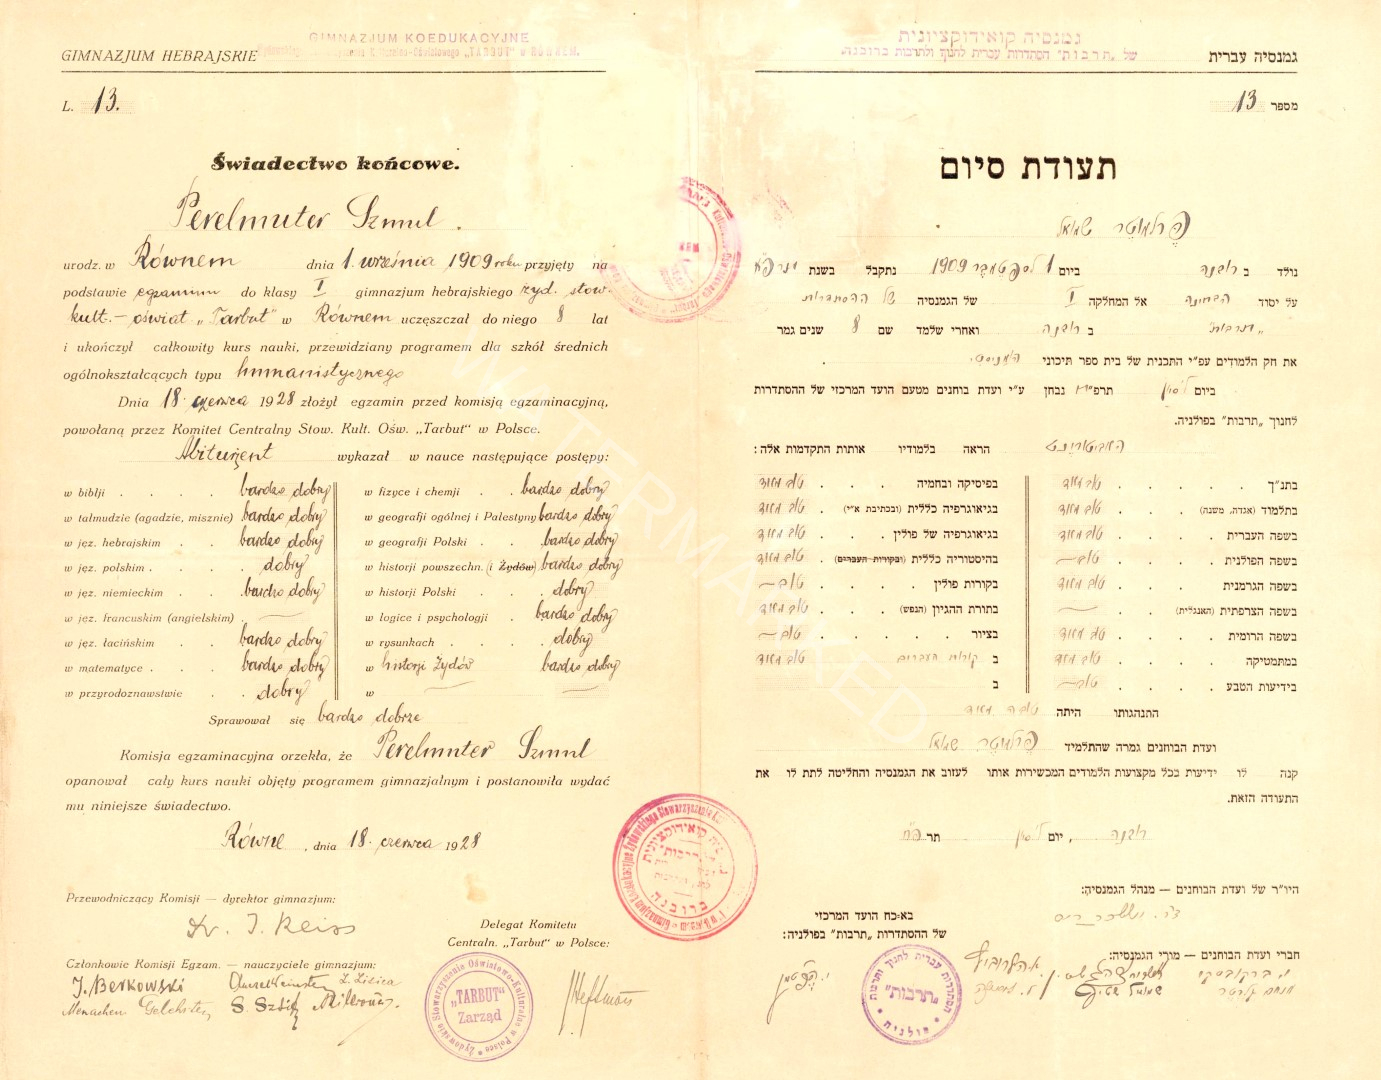 GIMNAZJUM KOEDUKACYJNE
Kulturalno-Oświatowego „TARBUT" w RÓWNEM.
GIMNAZJUM HEBRAJSKIE
L. 13.
Świadectwo końcowe.
Perelmuter Szmul.
urodz. w Równem dnia 1. września 1909 roku przyjęty na
podstawie egzaminu do klasy I gimnazjum hebrajskiego żyd. stow.
kult.-oświat „Tarbut" w Równem uczęszczał do niego 8 lat
i ukończył całkowity kurs nauki, przewidziany programem dla szkół średnich
ogólnokształcących typu humanistycznego
Dnia 18 czerwca 1928 złożył egzamin przed komisją egzaminacyjną,
powołaną przez Komitet Centralny Stow. Kult. Ośw. „Tarbut" w Polsce.
Abiturjent wykazał w nauce następujące postępy:
w biblji . . . . bardzo dobry
w talmudzie (agadzie, misznie) bardzo dobry
w jęz. hebrajskim . . bardzo dobry
w jęz. polskim . . . dobry
w jęz. niemieckim . . bardzo dobry
w jęz. francuskim (angielskim) . —
w jęz. łacińskim . . bardzo dobry
w matematyce . . . bardzo dobry
w przyrodoznawstwie . . dobry
w fizyce i chemji . . bardzo dobry
w geografji ogólnej i Palestyny bardzo dobry
w geografji Polski . . bardzo dobry
w historji powszechn. (i Żydów) bardzo dobry
w historji Polski . . . dobry
w logice i psychologji . bardzo dobry
w rysunkach . . . dobry
w historji Żydów bardzo dobry
w — —
Sprawował się bardzo dobrze
Komisja egzaminacyjna orzekła, że Perelmuter Szmul
opanował cały kurs nauki objęty programem gimnazjalnym i postanowiła wydać
mu niniejsze świadectwo.
Równe, dnia 18 czerwca 1928
Przewodniczący Komisji — dyrektor gimnazjum:
Dr. J. Reiss
Delegat Komitetu
Centraln. „Tarbut" w Polsce:
Członkowie Komisji Egzam. — nauczyciele gimnazjum:
J. Berkowski
Menachem
Żydowskie Stowarzyszenie Oświatowo-Kulturalne w Polsce
„TARBUT"
Zarząd
גמנסיה קואידוקציונית
של „תרבות" הסתדרות עברית לחנוך ולתרבות ברובנה.
גמנסיה עברית
מספר 13
תעודת סיום
פרלמוטר שמואל
נולד ב רובנה ביום 1 לספטמבר 1909 נתקבל בשנת
על יסוד הבחינה אל המחלקה I של הגמנסיה של ההסתדרות
„תרבות" ב רובנה ואחרי שלמד שם 8 שנים גמר
את חק הלמודים עפ"י התכנית של בית ספר תיכוני הומניסטי.
ביום ל' סיון תרפ"ח נבחן ע"י ועדת בוחנים מטעם הועד המרכזי של ההסתדרות
לחנוך „תרבות" בפולניה.
האביטוריינט הראה בלמודיו אותות התקדמות אלה:
בתנ"ך . . . . . טוב מאוד
בתלמוד (אגדה, משנה) . . טוב מאוד
בשפה העברית . . . . טוב מאוד
בשפה הפולנית . . . . טוב —
בשפה הגרמנית . . . . טוב מאוד
בשפה הצרפתית (האנגלית) . . —
בשפה הרומית . . . . טוב מאוד
במתמטיקה . . . . טוב מאוד
בידיעות הטבע . . . . טוב —
בפיסיקה ובחמיה . . . טוב מאוד
בגיאוגרפיה כללית (ובכתיבת א"י) . טוב מאוד
בגיאוגרפיה של פולין . . . טוב מאוד
בהיסטוריה כללית (ובקורות העברים) . טוב מאוד
בקורות פולין . . . . טוב —
בתורת ההגיון (הנפש) . . . טוב מאוד
בציור . . . . . . טוב —
ב קורות העברים טוב מאוד
ב
התנהגותו היתה טובה מאוד
ועדת הבוחנים גמרה שהתלמיד פרלמוטר שמואל
קנה לו ידיעות בכל מקצועות הלמודים המכשירות אותו לעזוב את הגמנסיה והחליטה לתת לו את
התעודה הזאת.
רובנה, יום ל' סיון תרפ"ח
היו"ר של ועדת הבוחנים — מנהל הגמנסיה:
בא-כח הועד המרכזי
של ההסתדרות „תרבות" בפולניה:
חברי ועדת הבוחנים — מורי הגמנסיה:
י. ברקובסקי
הסתדרות עברית לחנוך ותרבות
„תרבות"
פולניה
WATERMARKED